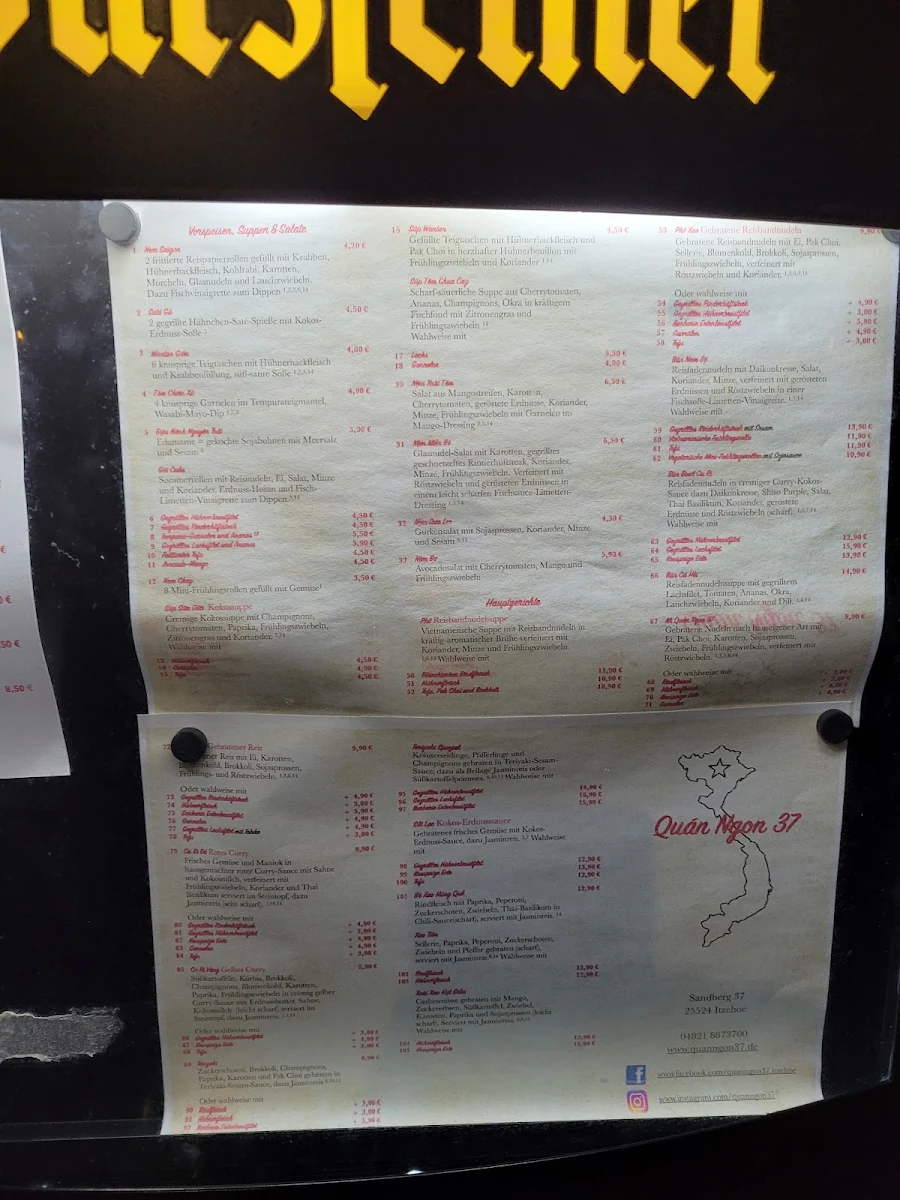 Vorspeisen, Suppen & Salate
1 Nem Saigon 4,20 €
2 frittierte Reispapierrollen gefüllt mit Krabben,
Hühnerhackfleisch, Kohlrabi, Karotten,
Morcheln, Glasnudeln und Lauchzwiebeln.
Dazu Fischvinaigrette zum Dippen
2 Saté Gà 4,50 €
2 gegrillte Hähnchen-Saté-Spieße mit Kokos-
Erdnuss-Soße
3 Wantan Giòn 4,00 €
6 knusprige Teigtaschen mit Hühnerhackfleisch
und Krabbenfüllung, süß-saure Soße
4 4,90 €
4 knusprige Garnelen im Tempurateigmantel,
Wasabi-Mayo-Dip
5 3,90 €
Edamame = gekochte Sojabohnen mit Meersalz
und Sesam
Gỏi Cuốn
Sommerrollen mit Reisnudeln, Ei, Salat, Minze
und Koriander, Erdnuss-Hoisin und Fisch-
Limetten-Vinaigrette zum Dippen
6 Gegrilltes Hühnerbrustfilet 4,50 €
7 Gegrilltes Rinderhüftsteak 4,50 €
8 Tempura-Garnelen und Ananas 5,50 €
9 Gegrilltes Lachsfilet und Ananas 5,90 €
10 Frittierter Tofu 4,50 €
11 Avocado-Mango 4,50 €
12 Nem Chay 3,50 €
8 Mini-Frühlingsrollen gefüllt mit Gemüse
Kokossuppe
Cremige Kokossuppe mit Champignons,
Cherrytomaten, Paprika, Frühlingszwiebeln,
Zitronengras und Koriander.
Wahlweise mit
13 Hühnerfleisch 4,50 €
14 Garnelen 4,90 €
15 Tofu 4,50 €
16 Súp Wantan 4,50 €
Gefüllte Teigtaschen mit Hühnerhackfleisch und
Pak Choi in herzhafter Hühnerbouillon mit
Frühlingszwiebeln und Koriander
Súp Tôm Chua Cay
Scharf-säuerliche Suppe aus Cherrytomaten,
Ananas, Champignons, Okra in kräftigem
Fischfond mit Zitronengras und
Frühlingszwiebeln
Wahlweise mit
17 Lachs 5,50 €
18 Garnelen 4,90 €
30 Nộm Xoài Tôm 6,50 €
Salat aus Mangostreifen, Karotten,
Cherrytomaten, geröstete Erdnüsse, Koriander,
Minze, Frühlingszwiebeln mit Garnelen im
Mango-Dressing
31 Nộm Miến Bò 6,50 €
Glasnudel-Salat mit Karotten, gegrilltes
geschnetzeltes Rinderhüftsteak, Koriander,
Minze, Frühlingszwiebeln. Verfeinert mit
Röstzwiebeln und gerösteten Erdnüssen in
einem leicht scharfen Fischsauce-Limetten-
Dressing
32 Nộm Dưa Leo 4,50 €
Gurkensalat mit Sojasprossen, Koriander, Minze
und Sesam
33 Nộm Bơ 5,90 €
Avocadosalat mit Cherrytomaten, Mango und
Frühlingszwiebeln
Hauptgerichte
Phở Reisbandnudelsuppe
Vietnamesische Suppe mit Reisbandnudeln in
kräftig-aromatischer Brühe verfeinert mit
Koriander, Minze und Frühlingszwiebeln.
Wahlweise mit
50 Blanchiertes Rindfleisch 11,90 €
51 Hühnerfleisch 10,90 €
52 Tofu, Pak Choi und Brokkoli 10,90 €
53 Phở Xào Gebratene Reisbandnudeln 9,90 €
Gebratene Reisbandnudeln mit Ei, Pak Choi,
Sellerie, Blumenkohl, Brokkoli, Sojasprossen,
Frühlingszwiebeln, verfeinert mit
Röstzwiebeln und Koriander.
Oder wahlweise mit
54 Gegrilltes Rinderhüftsteak + 4,90 €
55 Gegrilltes Hühnerbrustfilet + 3,00 €
56 Barbarie Entenbrustfilet + 5,90 €
57 Garnelen + 4,90 €
58 Tofu + 3,00 €
Bún Nam Bộ
Reisfadennudeln mit Daikonkresse, Salat,
Koriander, Minze, verfeinert mit gerösteten
Erdnüssen und Röstzwiebeln in einer
Fischsoße-Limetten-Vinaigrette.
Wahlweise mit
59 Gegrilltes Rinderhüftsteak mit Sesam 13,90 €
60 Vietnamesische Frühlingsrolle 11,90 €
61 Tofu 11,90 €
62 Vegetarische Mini-Frühlingsrollen mit Sojasauce 10,90 €
Reisfadennudeln in cremiger Curry-Kokos-
Sauce dazu Daikonkresse, Shiso Purple, Salat,
Thai Basilikum, Koriander, geröstete
Erdnüsse und Röstzwiebeln (scharf).
Wahlweise mit
63 Gegrilltes Hühnerbrustfilet 12,90 €
64 Gegrilltes Lachsfilet 15,90 €
65 Knusprige Ente 13,90 €
66 14,90 €
Reisfadennudelsuppe mit gegrilltem
Lachsfilet, Tomaten, Ananas, Okra,
Lauchzwiebeln, Koriander und Dill.
67 Mì Quán Ngon 37 9,90 €
Gebratene Nudeln nach hauseigener Art mit
Ei, Pak Choi, Karotten, Sojasprossen,
Zwiebeln, Frühlingszwiebeln, verfeinert mit
Röstzwiebeln.
Oder wahlweise mit
68 Rindfleisch
69 Hühnerfleisch
70 Knusprige Ente
71 Garnelen + 4,90 €
Gebratener Reis 9,90 €
Reis mit Ei, Karotten,
Blumenkohl, Brokkoli, Sojasprossen,
Frühlings- und Röstzwiebeln.
Oder wahlweise mit
73 Gegrilltes Rinderhüftsteak + 4,90 €
74 Hühnerfleisch + 3,00 €
75 Barbarie Entenbrustfilet + 5,90 €
76 Garnelen + 4,90 €
77 Gegrilltes Lachsfilet + 4,90 €
78 Tofu + 3,00 €
79 Cà Ri Đỏ Rotes Curry 8,90 €
Frisches Gemüse und Maniok in
hausgemachter roter Curry-Sauce mit Sahne
und Kokosmilch, verfeinert mit
Frühlingszwiebeln, Koriander und Thai
Basilikum serviert im Steintopf, dazu
Jasminreis (sehr scharf).
Oder wahlweise mit
80 Gegrilltes Rinderhüftsteak + 4,90 €
81 Gegrilltes Hühnerbrustfilet + 3,90 €
82 Knusprige Ente + 4,90 €
83 Garnelen + 4,90 €
84 Tofu + 3,00 €
85 Cà Ri Vàng Gelbes Curry 9,90 €
Süßkartoffeln, Kürbis, Brokkoli,
Champignons, Blumenkohl, Karotten,
Paprika, Frühlingszwiebeln in cremig gelber
Curry-Sauce mit Erdnussbutter, Sahne,
Kokosmilch (leicht scharf) serviert im
Steintopf, dazu Jasminreis.
Oder wahlweise mit
86 Gegrilltes Hühnerbrustfilet
87 Knusprige Ente
88 Tofu
89 Teriyaki 8,90 €
Zuckerschoten, Brokkoli, Champignons,
Paprika, Karotten und Pak Choi gebraten in
Teriyaki-Sesam-Sauce, dazu Jasminreis
Oder wahlweise mit
90 Rindfleisch
91 Hühnerfleisch
92 Barbarie Entenbrustfilet + 5,90 €
Teriyaki Spezial
Kräuterseitlinge, Pfifferlinge und
Champignons gebraten in Teriyaki-Sesam-
Sauce, dazu als Beilage Jasminreis oder
Süßkartoffelpommes. Wahlweise mit
95 Gegrilltes Hühnerbrustfilet 14,90 €
96 Gegrilltes Lachsfilet 16,90 €
97 Barbarie Entenbrustfilet 15,90 €
Kokos-Erdnusssauce
Gebratenes frisches Gemüse mit Kokos-
Erdnuss-Sauce, dazu Jasminreis. Wahlweise
mit
98 Gegrilltes Hühnerbrustfilet 12,90 €
99 Knusprige Ente 13,90 €
100 Tofu 12,90 €
101 Bò Xào Húng Quế 12,90 €
Rindfleisch mit Paprika, Peperoni,
Zuckerschoten, Zwiebeln, Thai-Basilikum in
Chili-Sauce(scharf), serviert mit Jasminreis.
Sellerie, Paprika, Peperoni, Zuckerschoten,
Zwiebeln und Pfeffer gebraten (scharf),
serviert mit Jasminreis. Wahlweise mit
102 Rindfleisch 12,90 €
103 Hühnerfleisch 12,90 €
Xoài Xào Hạt Điều
Cashewnüsse gebraten mit Mango,
Zuckererbsen, Süßkartoffel, Zwiebel,
Karotten, Paprika und Sojasprossen (leicht
scharf). Serviert mit Jasminreis.
Wahlweise mit
104 Hühnerfleisch
105 Knusprige Ente
Quán Ngon 37
Sandberg 37
25524 Itzehoe
04821 8873700
www.quanngon37.de
www.facebook.com/quanngon37.itzehoe
www.instagram.com/quanngon37
8,50 €